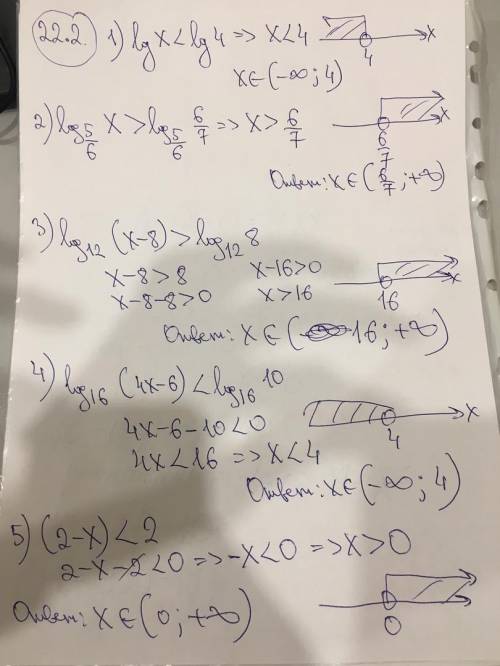 22.2. 1) lg x < lg 4 => x < 4
x
4
x∈(-∞; 4)
2) log_{5/6} x > log_{5/6} 6/7 => x > 6/7
x
6/7
Ответ: x∈(6/7; +∞)
3) log_{12} (x-8) > log_{12} 8
x-8>8 x-16>0
x-8-8>0 x>16
16
x
Ответ: x∈(16; +∞)
4) log_{16} (4x-6) < log_{16} 10
4x-6-10<0
4x<16 => x<4
4
x
Ответ: x∈(-∞; 4)
5) (2-x)<2
2-x-2<0 => -x<0 => x>0
Ответ: x∈(0; +∞)
0